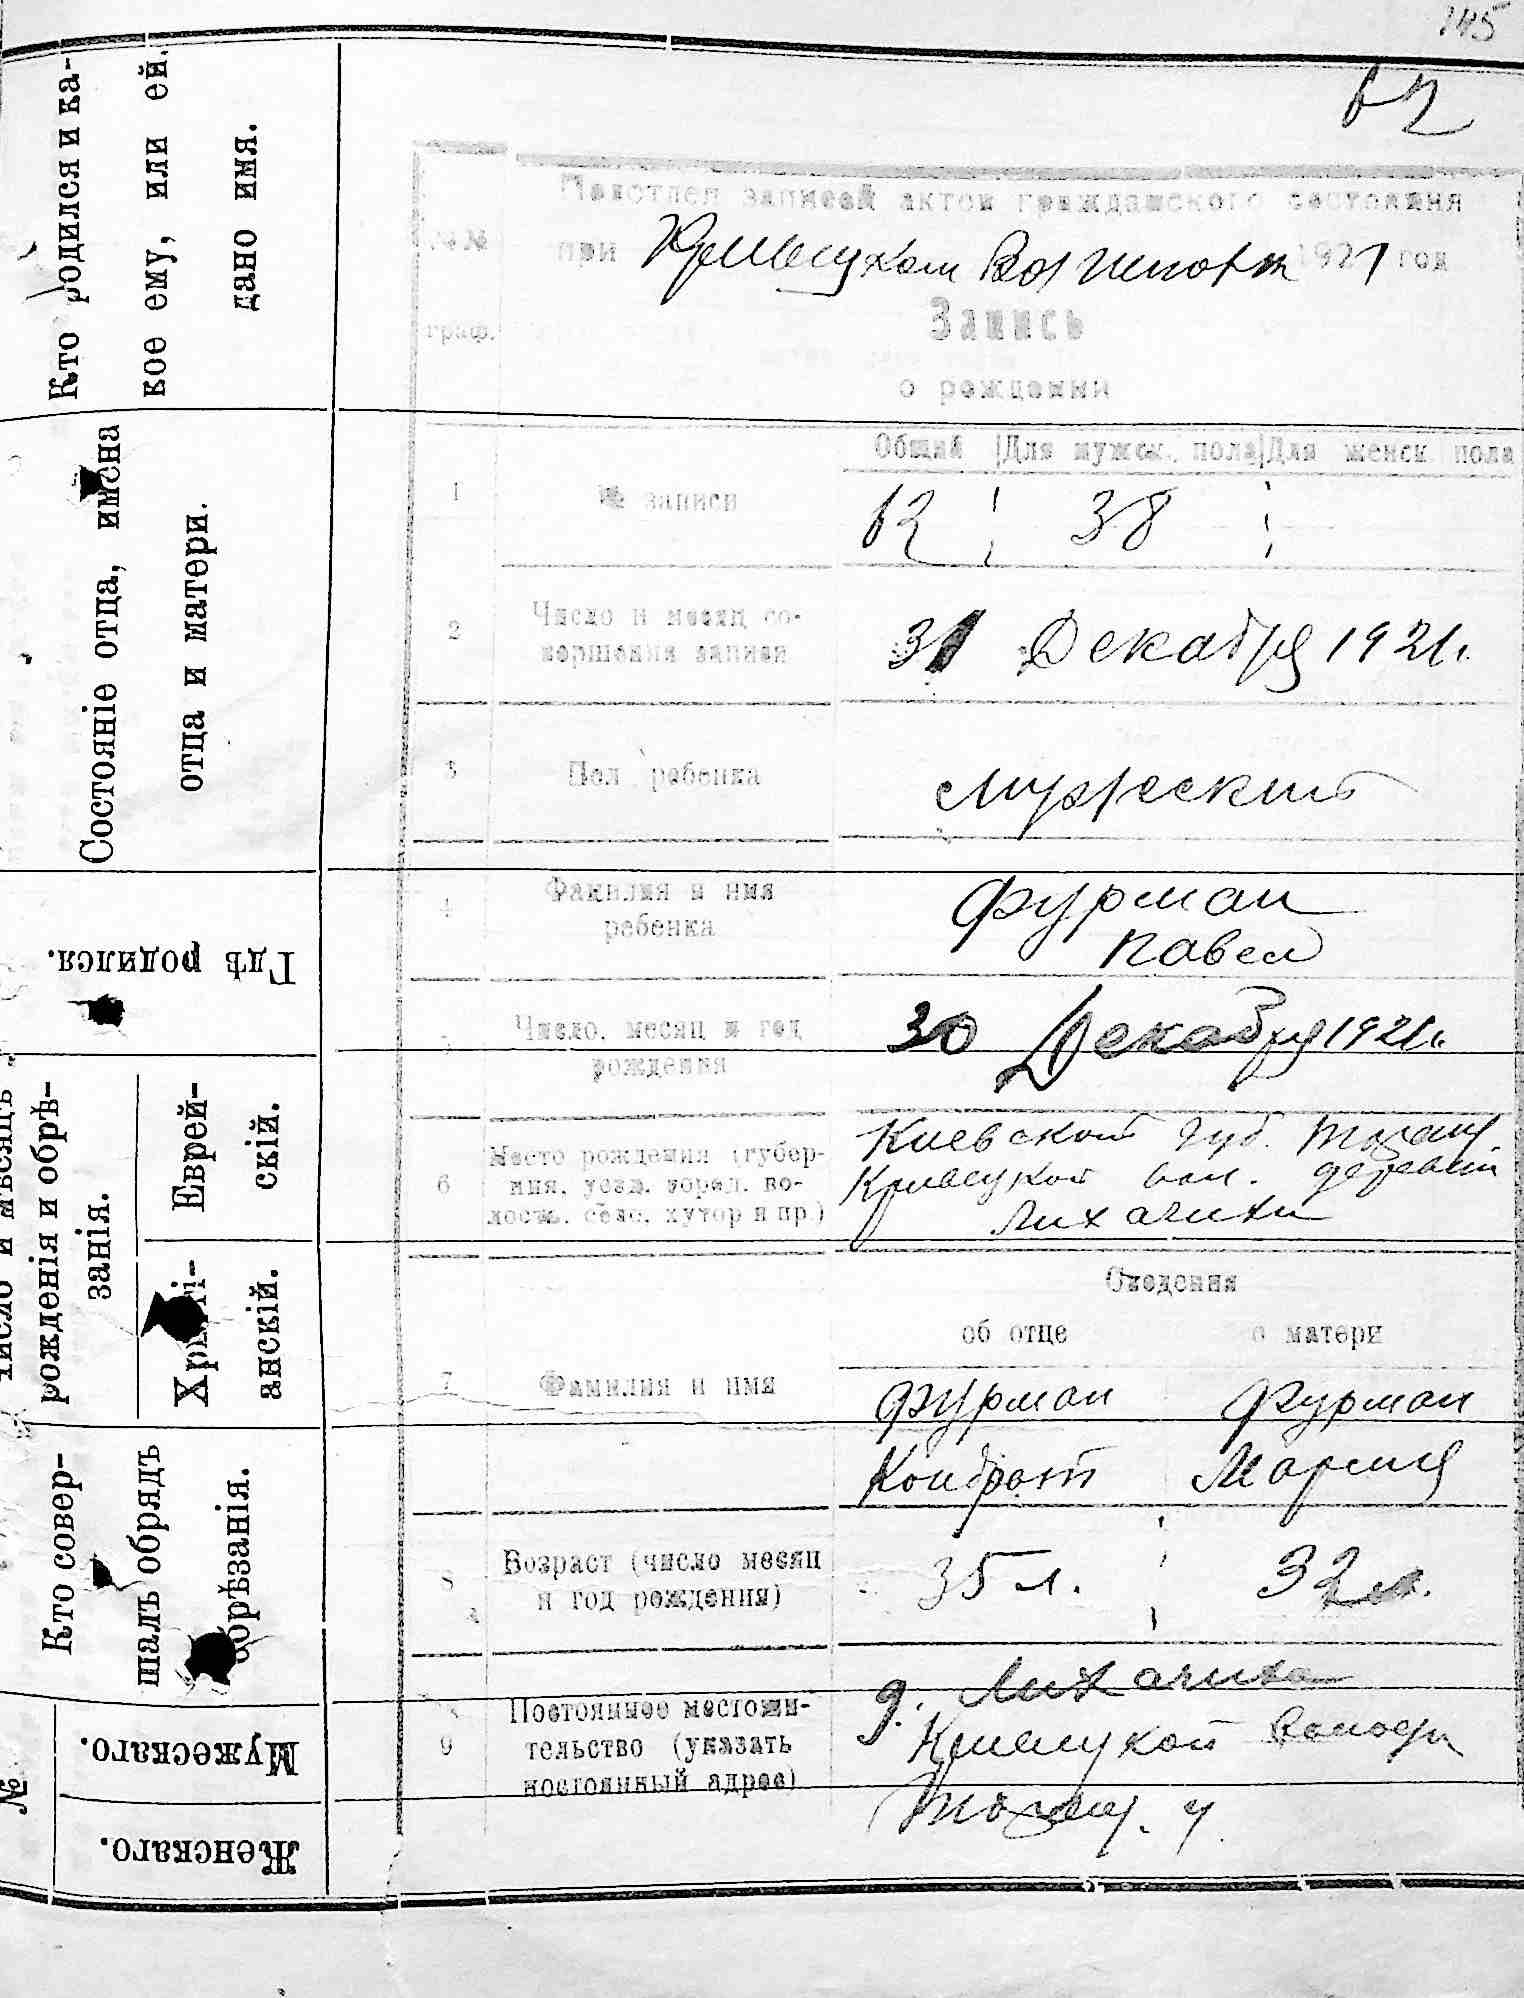 145
62
Кто родился и ка-
кое ему, или ей,
дано имя.
Состояніе отца, имена
отца и матери.
Гдѣ родился.
Число и мѣсяцъ
рожденія и обрѣ-
занія.
Еврей-
скій.
Христі-
анскій.
Кто совер-
шалъ обрядъ
обрѣзанія.
№
Мужескаго.
Женскаго.
Подотдел записей актов гражданского состояния
№№ при 1921 год
граф.
Запись
о рождении
Общий Для мужск. пола Для женск. пола
1 № записи 62 38
2 Число и месяц со-
вершения записи 31 Декабря 1921 г.
3 Пол ребенка мужеский
4 Фамилия и имя
ребенка
Фурман
Павел
Число, месяц и год
рождения 30 Декабря 1921 г.
6 Место рождения (губер-
ния, уезд, город, во-
лость, село, хутор и пр.)
Киевской губ. Таращ.
вол. деревни
Лихачихи
Сведения
об отце о матери
7 Фамилия и имя Фурман Фурман
Кондрат Мария
8 Возраст (число месяц
и год рождения) 35 л. 32 л.
9 Постоянное местожи-
тельство (указать
постоянный адрес)
д. Лихачиха
Волости
Таращ. у.